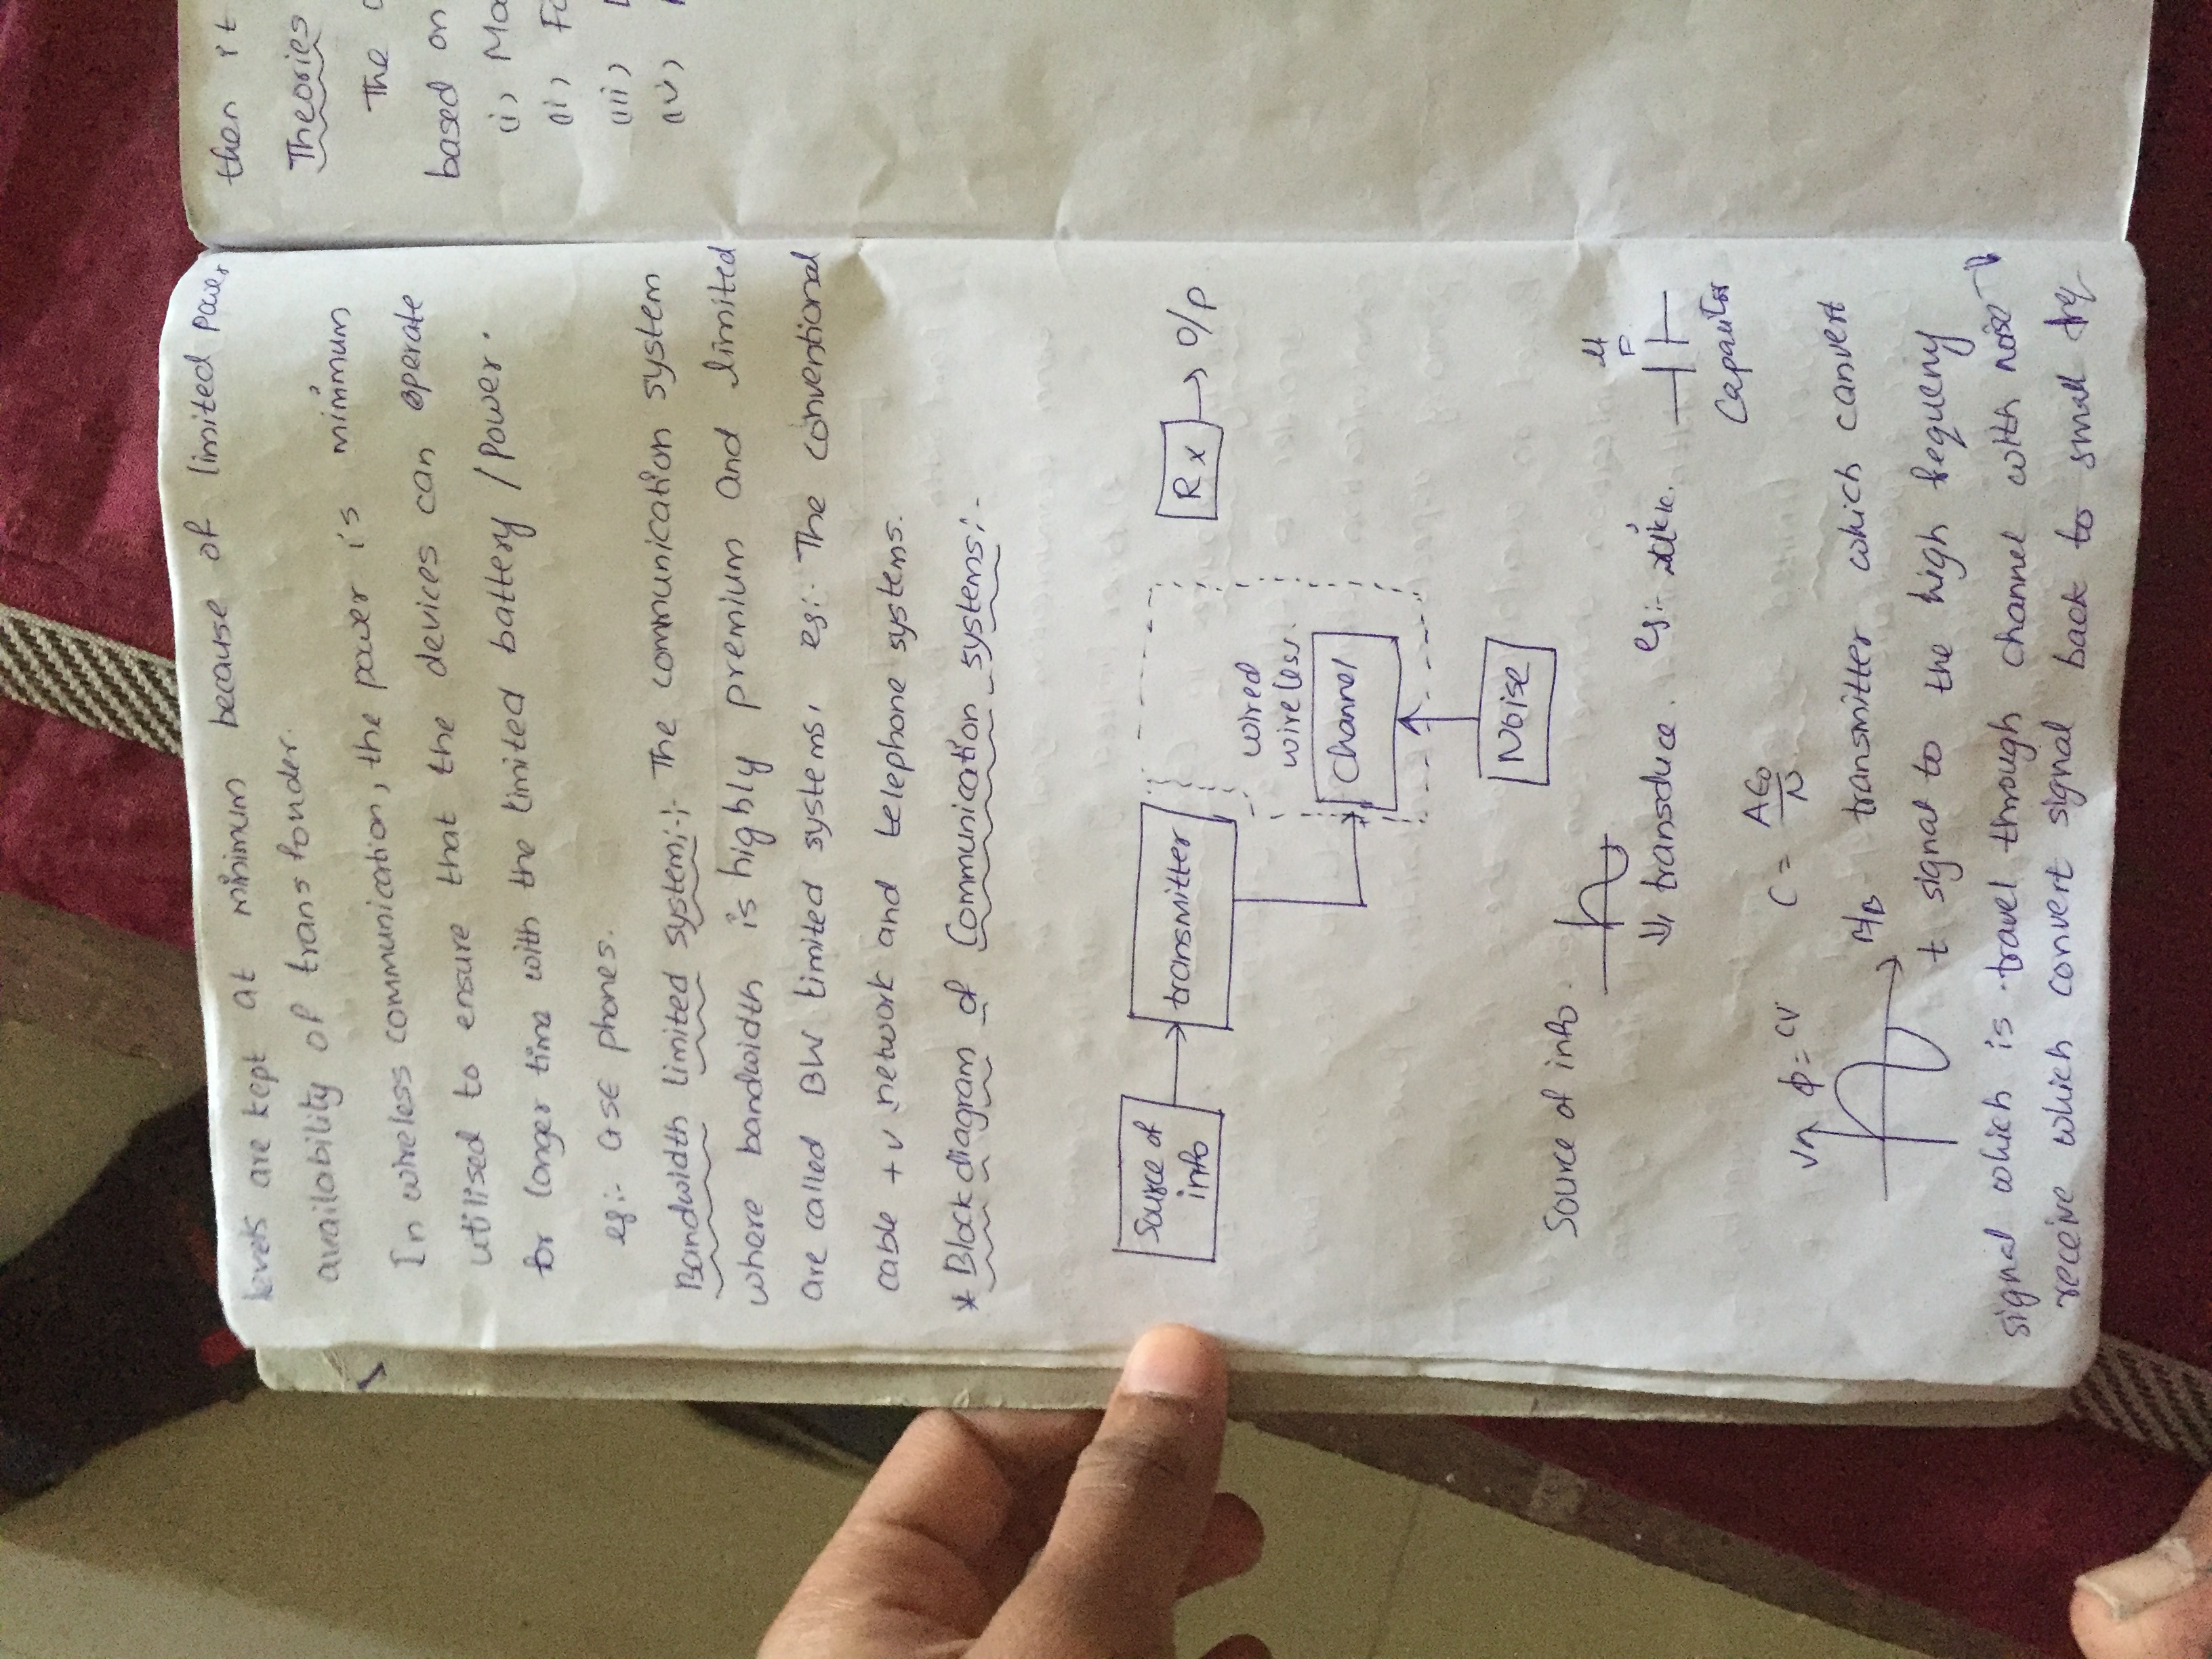 levels are kept at minimum because of limited power
availability of transfonder.
In wireless communication, the power is minimum
utilised to ensure that the devices can operate
for longer time with the limited battery / Power.
eg:- GSE phones.
Bandwidth limited system:-:- The communication system
where bandwidth is highly premium and limited
are called BW limited systems, eg:- The conventional
cable tv network and telephone systems.
* Block diagram of Communication systems:-
Source of
info
transmitter
Rx → O/P
wired
wireless.
Channel
Noise
Source of info.
⇓ transduce. eg:-
Capacitor
V ϕ = CV C = Aϵo
B/B transmitter which canvert
t signal to the high fequeny
signal which is travel through channel with noise →
receive which convert signal back to small freq
then it
Theories
The
based on
(i) Mo
(ii) Fo
(iii)
(iv)